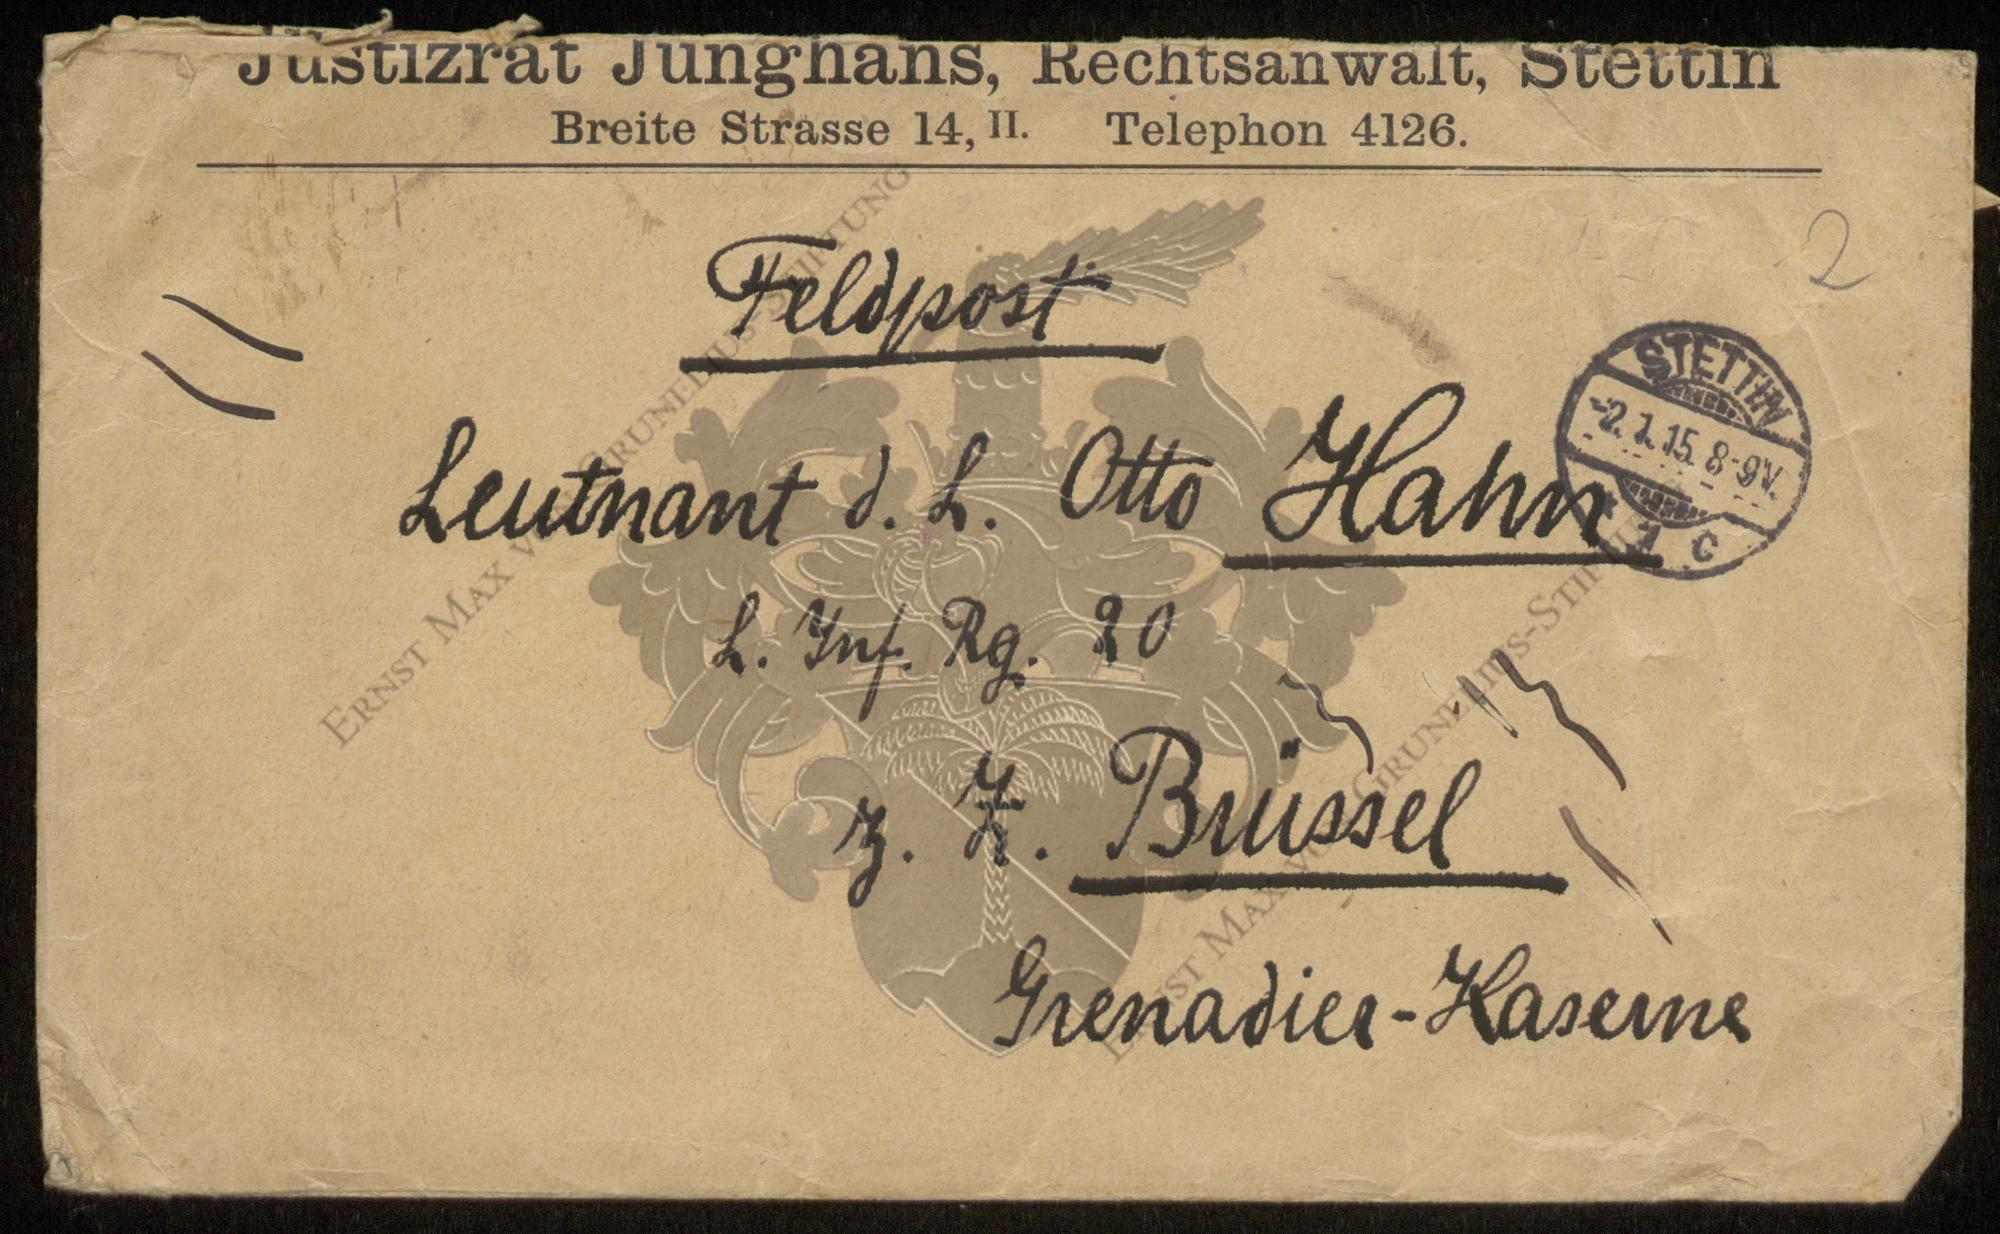 Justizrat Junghans, Rechtsanwalt, Stettin
Breite Strasse 14, II. Telephon 4126.
2
Feldpost
STETTIN
-2.1.15. 8-9V.
* 1 c
Leutnant d. L. Otto Hahn
L. Inf. Rg. 20
z. Z. Brüssel
Grenadier-Kaserne
ERNST MAX VON GRUNELIUS-STIFTUNG
ERNST MAX VON GRUNELIUS-STIFTUNG